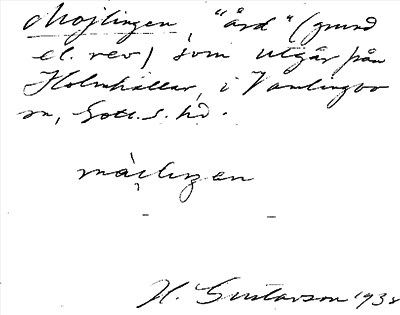 Mojlingen, "ård" (grund
el. rev) som utgår från
Holmhällar, i Vamlingbo
sn, Gotl. s. hd.
màilingen
H. Gustavson 1938